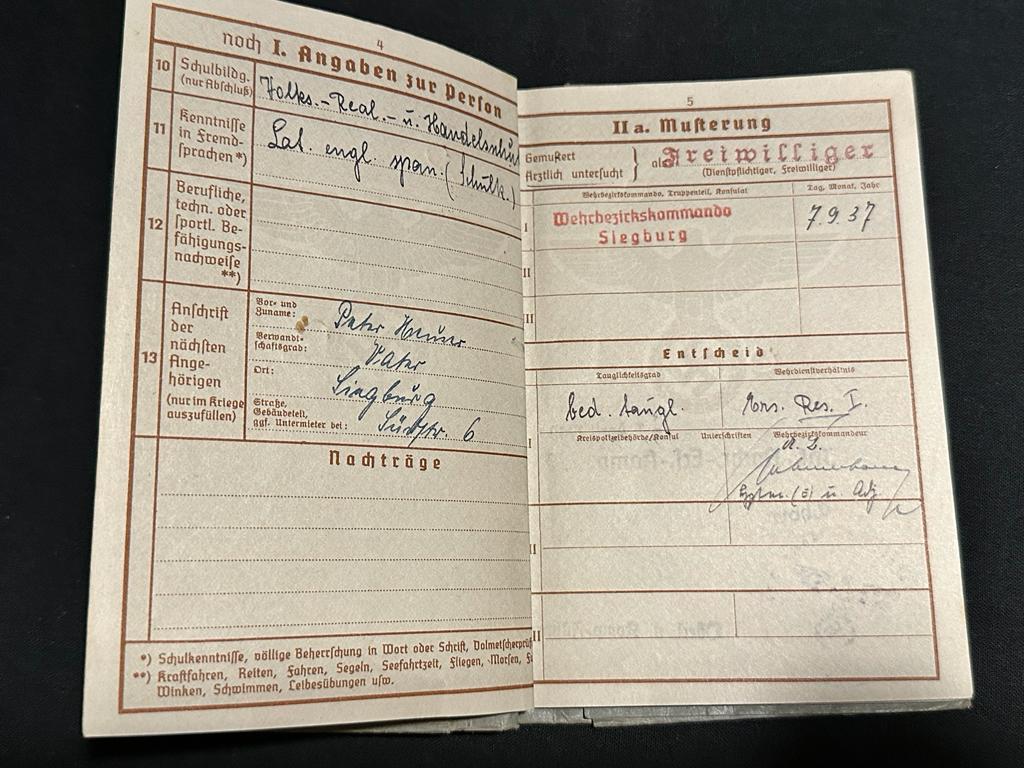 4
noch I. Angaben zur Person
10 Schulbildg.
(nur Abschluß)
Volks.- Real.- u. Handelsschule
11 Kenntnisse
in Fremd-
sprachen *)
Lat. engl. span. (Schulk.)
12 Berufliche,
techn. oder
sportl. Be-
fähigungs-
nachweise
**)
13 Anschrift
der
nächsten
Ange-
hörigen
(nur im Kriege
auszufüllen)
Vor- und
Zuname:
Peter
Verwandt-
schaftsgrad:
Vater
Ort:
Siegburg
Straße,
Gebäudeteil,
ggf. Untermieter bei:
Südstr. 6
Nachträge
*) Schulkenntnisse, völlige Beherrschung in Wort oder Schrift,
**) Kraftfahren, Reiten, Fahren, Segeln, Seefahrtzeit, Fliegen, Morsen,
Winken, Schwimmen, Leibesübungen usw.
5
II a. Musterung
Gemustert
Ärztlich untersucht
als Freiwilliger
(Dienstpflichtiger, Freiwilliger)
Wehrbezirkskommando, Truppenteil, Konsulat
Tag, Monat, Jahr
I
Wehrbezirkskommando
Siegburg
7.9.37
II
III
Entscheid
Tauglichkeitsgrad
Wehrdienstverhältnis
bed. taugl.
Ers. Res. I.
I
Kreispolizeibehörde/Konsul
Unterschriften
Wehrbezirkskommandeur
Hptm. (E) u. Adj.
II
III